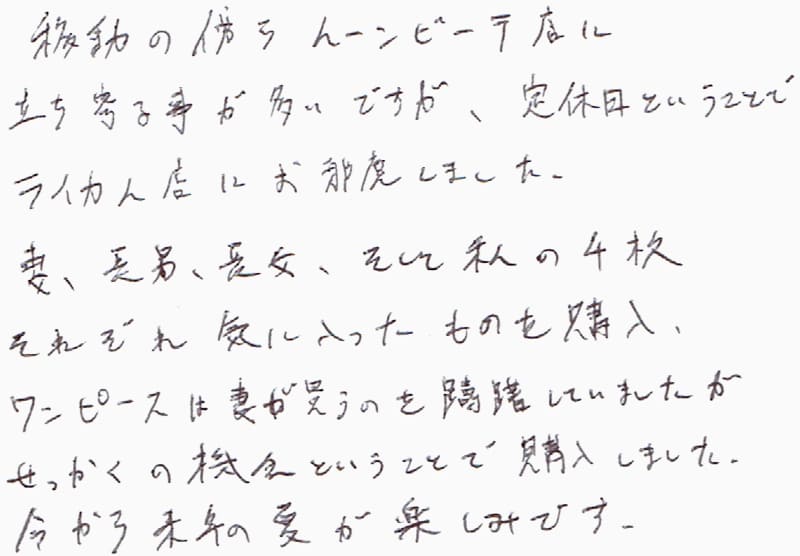 移動の傍ら ムーンビーチ店に
立ち寄る事が多いですが、定休日ということで
ライカム店にお邪魔しました。
妻、長男、長女、そして私の4枚
それぞれ気に入ったものを購入、
ワンピースは妻が買うのを躊躇していましたが
せっかくの機会ということで購入しました。
今から来年の夏が楽しみです。